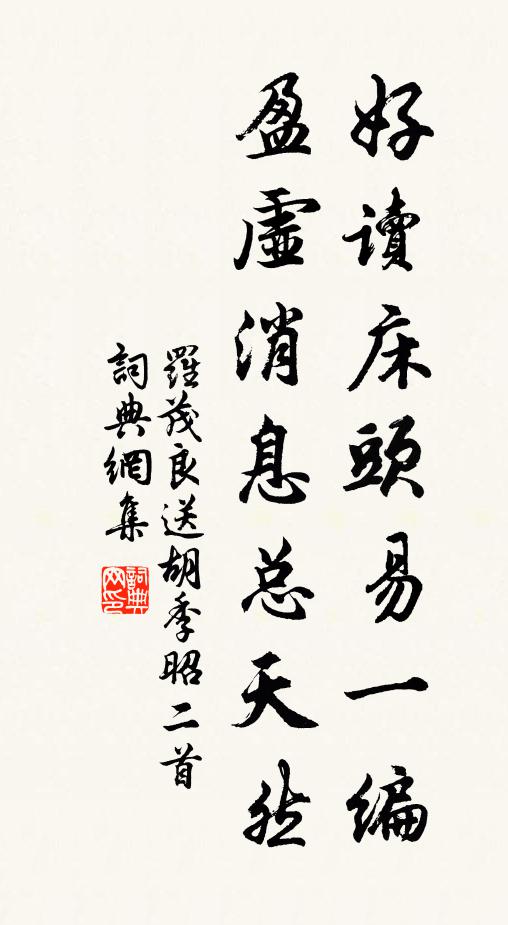 好讀床頭易一編
盈虛消息总天然
羅茂良送胡季昭二首
詞典網集
詞典网印